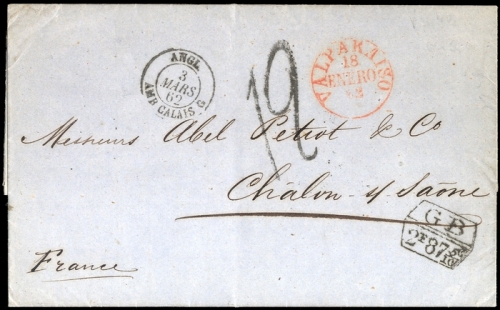 ANGL.
3
MARS
62
AMB. CALAIS G
12
VALPARAISO
18
ENERO
62
Messieurs Abel Petiot & Co
Châlon s/ Saône
France
GB
2F87c